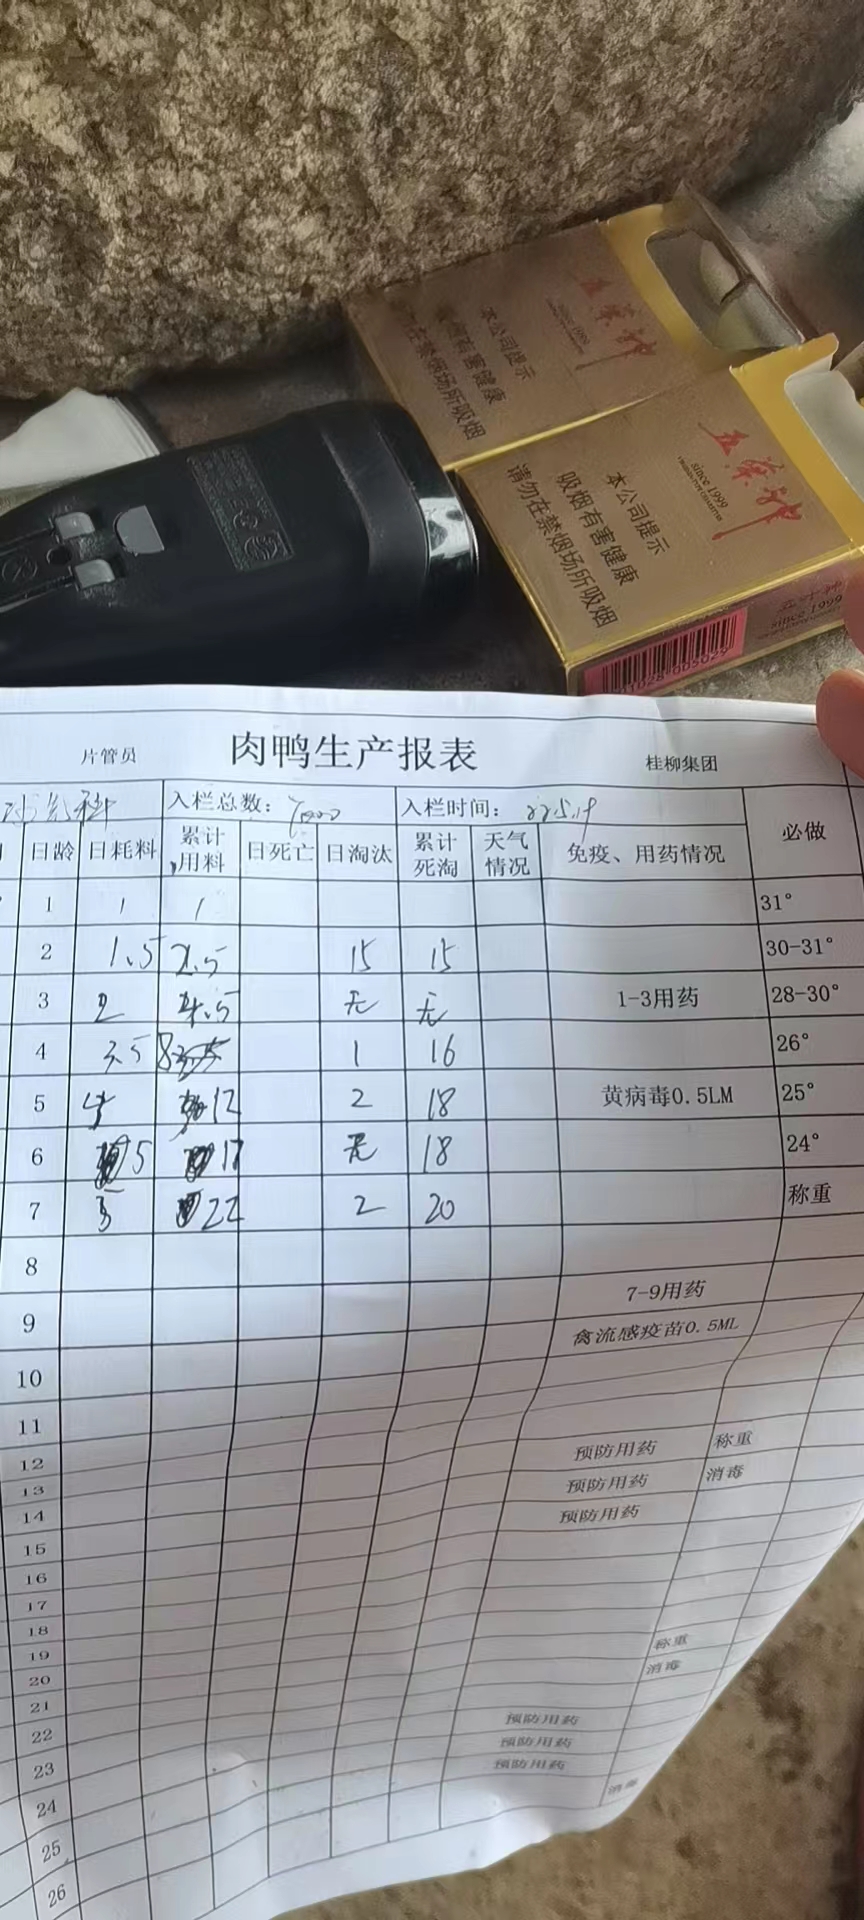 五叶神
since 1999
本公司提示
吸烟有害健康
请勿在禁烟场所吸烟
五叶神
since 1999
本公司提示
吸烟有害健康
请勿在禁烟场所吸烟
since 1999
片管员 肉鸭生产报表 桂柳集团
入栏总数: 入栏时间: 必做
日龄 日耗料 累计用料 日死亡 日淘汰 累计死淘 天气情况 免疫、用药情况
1 1 1 31°
2 1.5 2.5 15 15 30-31°
3 2 4.5 无 无 1-3用药 28-30°
4 3.5 8 1 16 26°
5 4 12 2 18 黄病毒0.5LM 25°
6 5 17 无 18 24°
7 5 22 2 20 称重
8
9 7-9用药
10 禽流感疫苗0.5ML
11
12 预防用药 称重
13 预防用药 消毒
14 预防用药
15
16
17
18
19 称重
20 消毒
21
22 预防用药
23 预防用药
24 预防用药
25 消毒
26